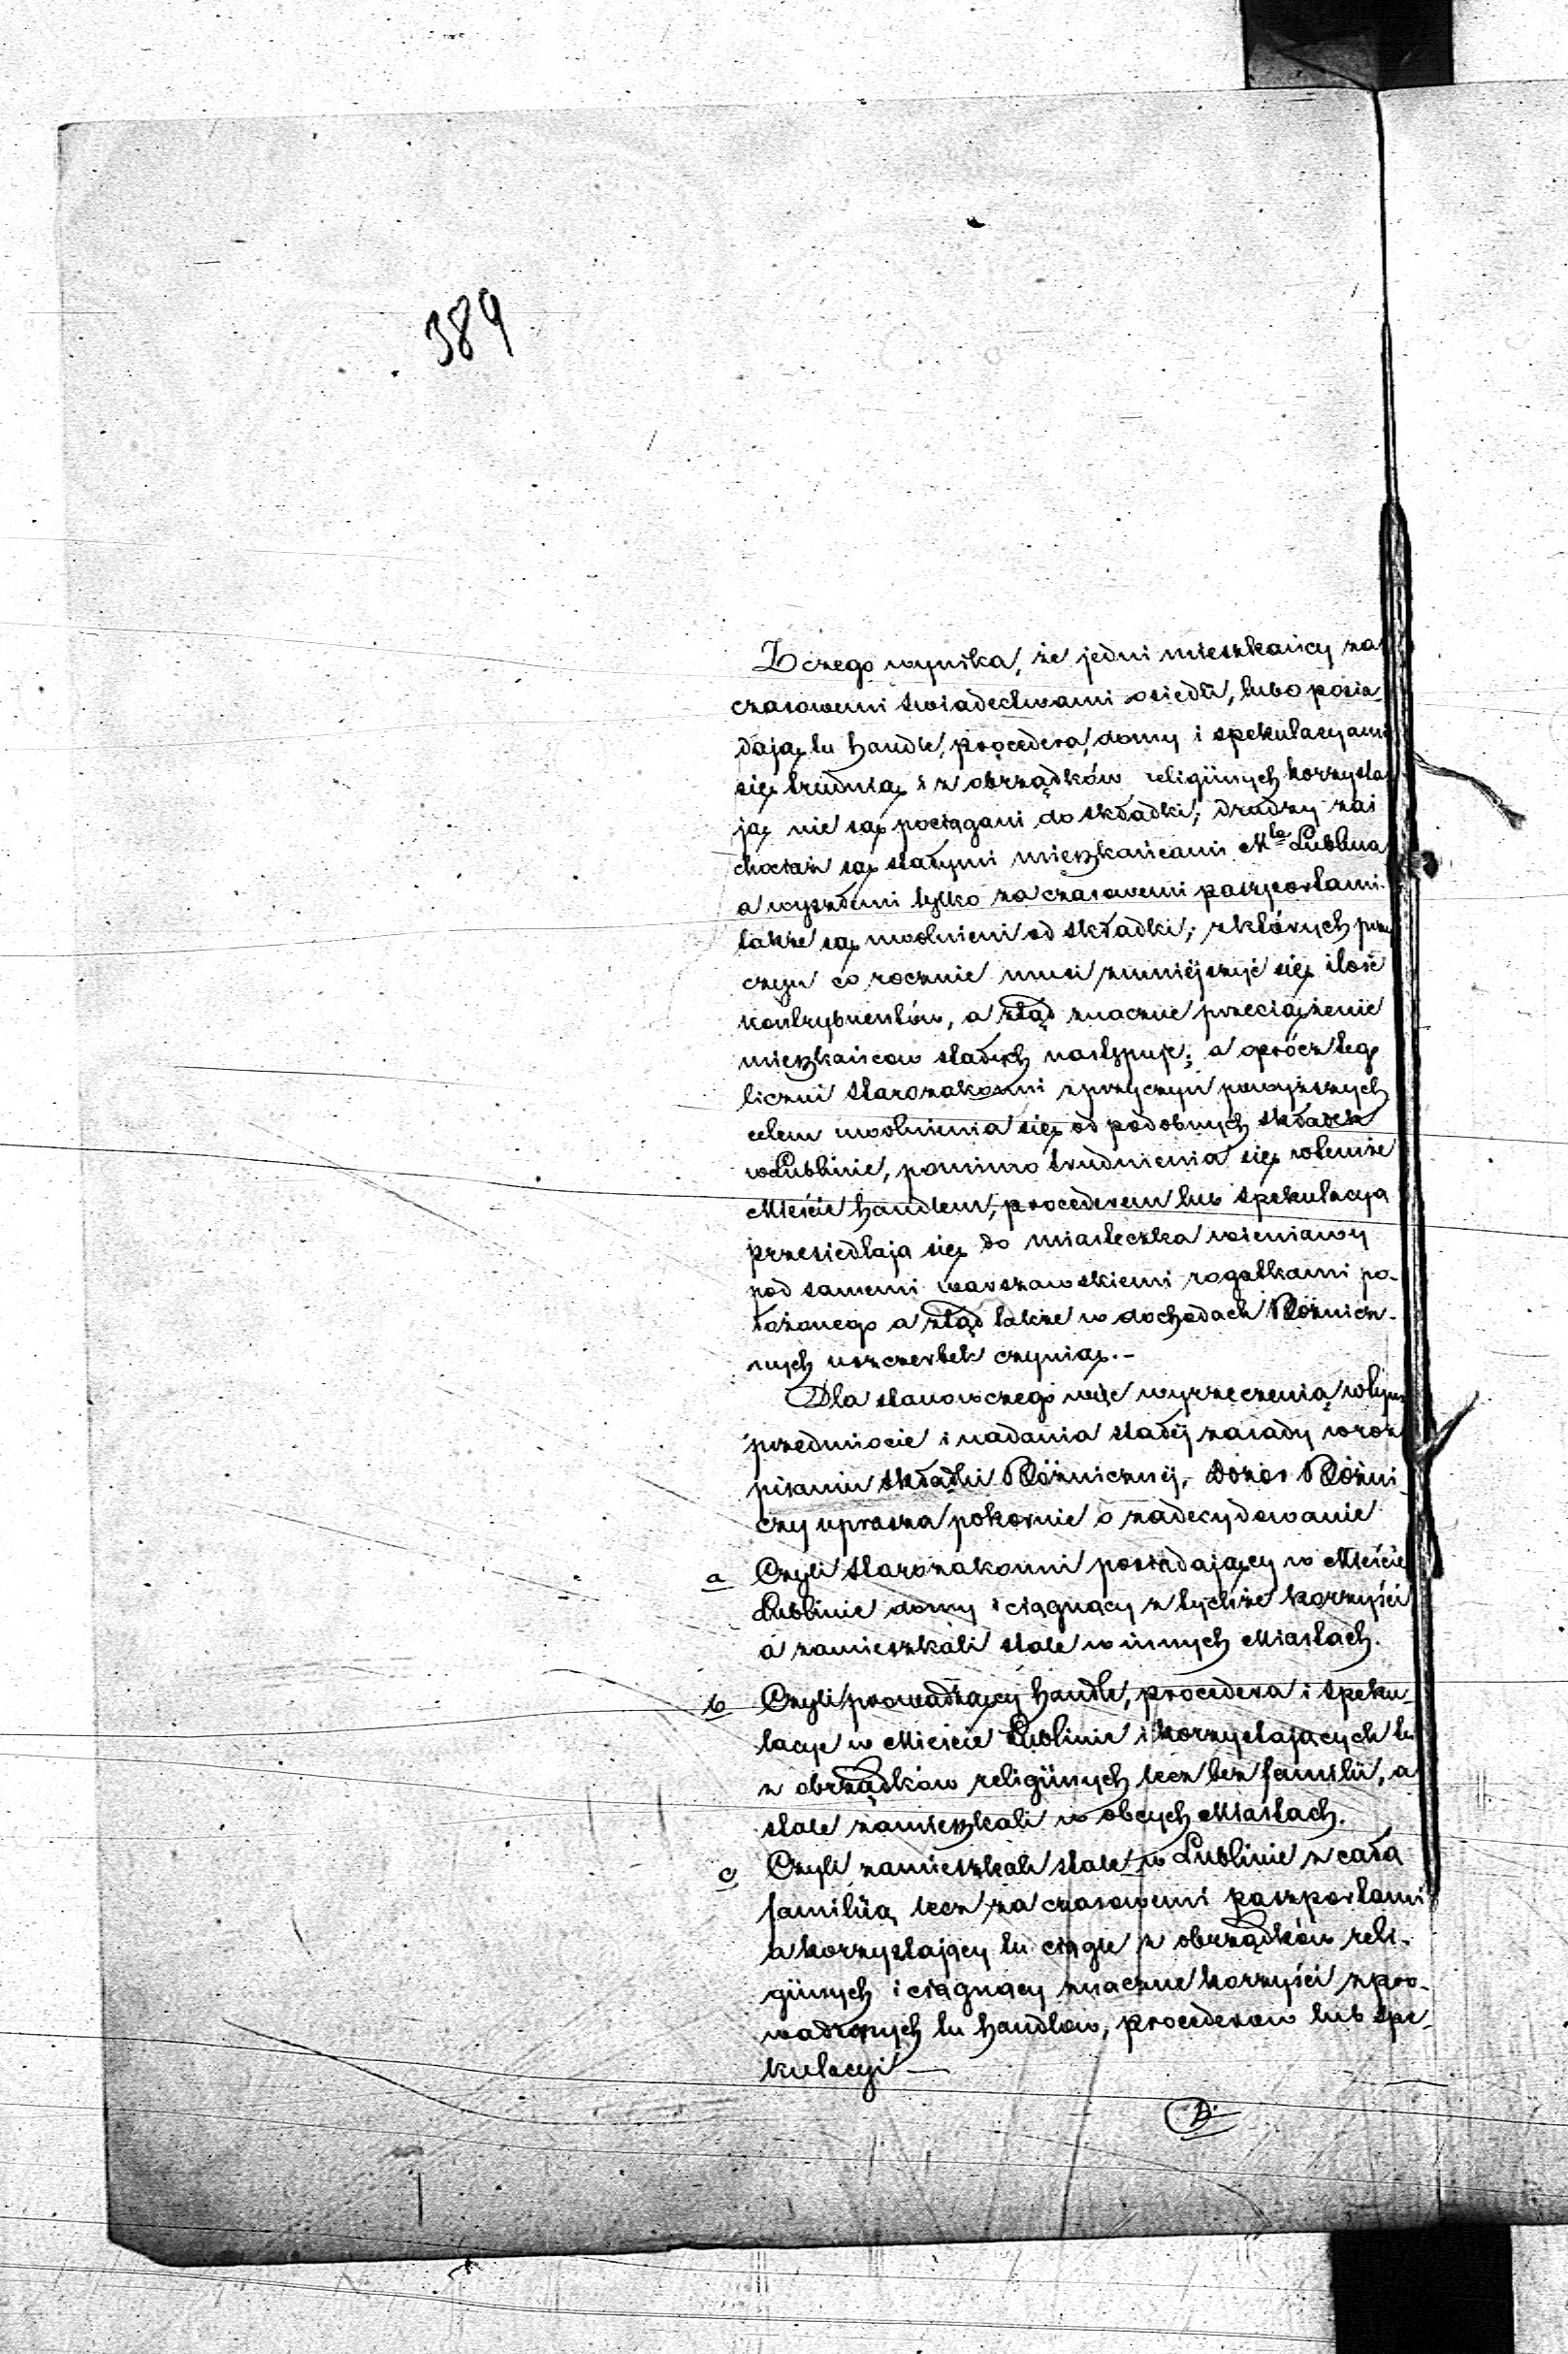 389
Z czego wynika, że jedni mieszkańcy za
czasowemi świadectwami osiedli, lubo posia-
dają tu handle, procedera, domy i spekulacyami
się trudnią i z obrządków religijnych korzysta-
ją nie są pociągani do składki; drudzy zaś
chociaż są stałymi mieszkańcami Mta Lublina
a wyszłemi tylko za czasowemi paszportami
także są uwolnieni od składki; z których przy
czyn co rocznie musi zmniejszyć się ilość
kontrybuentów, a ztąd znaczne przeciążenie
mieszkańcow stałych następuje; a oprócz tego
liczni Starozakonni z przyczyn powyższych
celem uwolnienia się od podobnych składek
w Lublinie, pomimo trudnienia się w temże
Mieście handlem, procederem lub spekulacya
przesiedlaja się do miasteczka wieniawy
pod samemi warszawskiemi rogatkami po-
łożonego a ztąd także w dochodach Bóżnicz-
nych uszczerbek czynią.-
Dla stanowczego więc wyrzeczenia w tym
przedmiocie i nadania stałéj zasady w roz
pisaniu składki Bóżnicznéj, Dozór Bóżni-
czy uprasza pokornie o zadecydowanie
a Czyli Starozakonni posiadający w Mieście
Lublinie domy i ciągnący z tychże korzyści
a zamieszkali stale w innych Miastach.
b Czyli prowadzący handle, procedera i speku-
lacye w Mieście Lublinie i korzystających tu
z obrządków religijnych lecz bez familii, a
stale zamieszkali w obcych Miastach.
c Czyli zamieszkali stale w Lublinie z cała
familiią, lecz za czasowemi paszportami
a korzystający tu ciągle z obrządków reli-
gijnych i ciągnący znaczne korzyści z pro-
wadzonych tu handlow, procederow lub spe-
kulacyi —